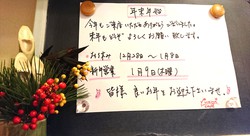 年末年始
今年もご愛顧いただきありがとうございました。
来年もどうぞよろしくお願い致します。
お休み 12月28日〜1月8日
新年営業 1月9日(木曜)
皆様 良いお年をお迎え下さいませ。